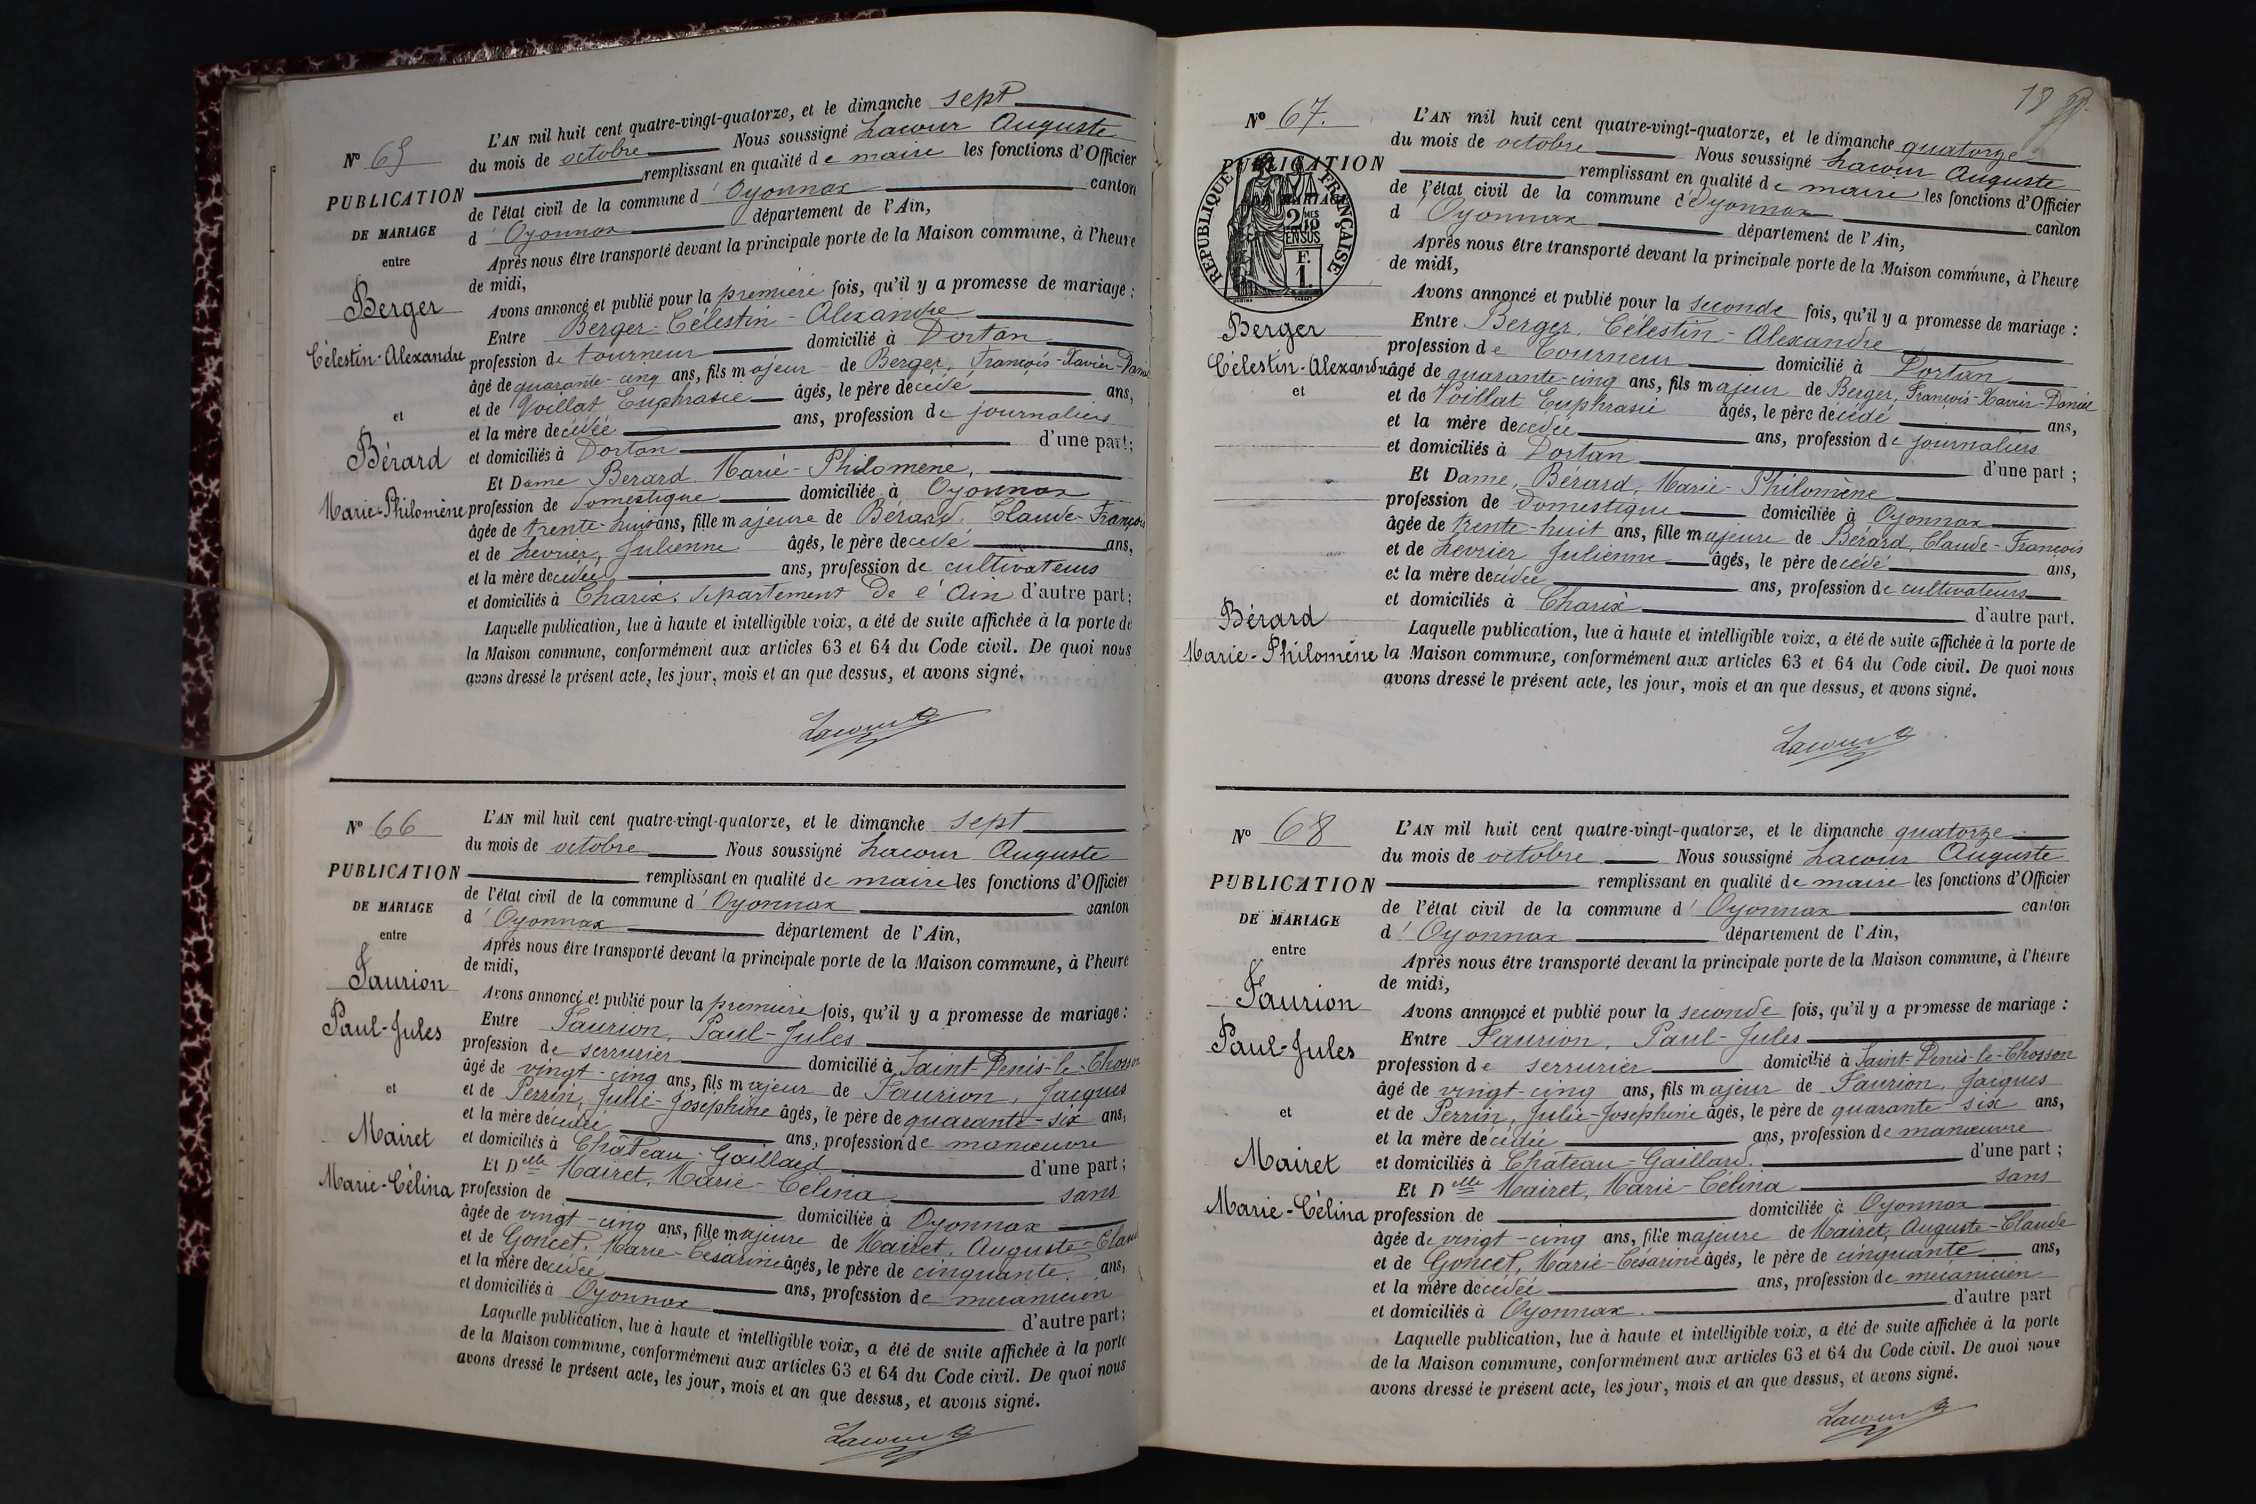 Nº 65
PUBLICATION
DE MARIAGE
entre
Berger
Célestin-Alexandre
et
Bérard
Marie-Philomène
L'AN mil huit cent quatre-vingt-quatorze, et le dimanche sept
du mois de octobre Nous soussigné Lacour Auguste
remplissant en qualité de maire les fonctions d'Officier
de l'état civil de la commune d'Oyonnax canton
d'Oyonnax département de l'Ain,
Après nous être transporté devant la principale porte de la Maison commune, à l'heure
de midi,
Avons annoncé et publié pour la première fois, qu'il y a promesse de mariage :
Entre Berger-Célestin-Alexandre
profession de tourneur domicilié à Dortan
âgé de quarante-cinq ans, fils majeur de Berger, François-Xavier-Daniel
et de Voillat Euphrasie âgés, le père décédé ans,
et la mère décédée ans, profession de journaliers
et domiciliés à Dortan d'une part;
Et Dame Bérard Marie-Philomène,
profession de domestique domiciliée à Oyonnax
âgée de trente-huit ans, fille majeure de Bérard, Claude-François
et de Levrier, Julienne âgés, le père decédé ans,
et la mère decédée ans, profession de cultivateurs
et domiciliés à Charix, département de l'Ain d'autre part;
Laquelle publication, lue à haute et intelligible voix, a été de suite affichée à la porte de
la Maison commune, conformément aux articles 63 et 64 du Code civil. De quoi nous
avons dressé le présent acte, les jour, mois et an que dessus, et avons signé.
Lacour A
Nº 66
PUBLICATION
DE MARIAGE
entre
Faurion
Paul-Jules
et
Mairet
Marie-Célina
L'AN mil huit cent quatre-vingt-quatorze, et le dimanche sept
du mois de octobre Nous soussigné Lacour Auguste
remplissant en qualité de maire les fonctions d'Officier
de l'état civil de la commune d'Oyonnax canton
d'Oyonnax département de l'Ain,
Après nous être transporté devant la principale porte de la Maison commune, à l'heure
de midi,
Avons annoncé et publié pour la première fois, qu'il y a promesse de mariage :
Entre Faurion, Paul-Jules
profession de serrurier domicilié à Saint-Denis-le-Chosson
âgé de vingt-cinq ans, fils majeur de Faurion, Jacques
et de Perrin, Julie-Josephine âgés, le père de quarante-six ans,
et la mère décédée ans, profession de manœuvre
et domiciliés à Château-Gaillard d'une part;
Et Delle Mairet, Marie-Célina sans
profession de domiciliée à Oyonnax
âgée de vingt-cinq ans, fille majeure de Mairet, Auguste-Claude
et de Goncet, Marie-Césarine âgés, le père de cinquante ans,
et la mère decédée ans, profession de mécanicien
et domiciliés à Oyonnax d'autre part;
Laquelle publication, lue à haute et intelligible voix, a été de suite affichée à la porte
de la Maison commune, conformément aux articles 63 et 64 du Code civil. De quoi nous
avons dressé le présent acte, les jour, mois et an que dessus, et avons signé.
Lacour A
18
Nº 67.
PUBLICATION
MARIAGE
RÉPUBLIQUE FRANÇAISE
2/10MES
EN SUS
F.
1.
Berger
Célestin-Alexandre
et
Bérard
Marie-Philomène
L'AN mil huit cent quatre-vingt-quatorze, et le dimanche quatorze
du mois de octobre Nous soussigné Lacour Auguste
remplissant en qualité de maire les fonctions d'Officier
de l'état civil de la commune d'Oyonnax canton
d'Oyonnax département de l'Ain,
Après nous être transporté devant la principale porte de la Maison commune, à l'heure
de midi,
Avons annoncé et publié pour la seconde fois, qu'il y a promesse de mariage :
Entre Berger, Célestin-Alexandre
profession de Tourneur domicilié à Dortan
âgé de quarante-cinq ans, fils majeur de Berger, François-Xavier-Daniel
et de Voillat Euphrasie âgés, le père décédé ans,
et la mère decedée ans, profession de journaliers
et domiciliés à Dortan d'une part;
Et Dame, Bérard, Marie-Philomène
profession de domestique domiciliée à Oyonnax
âgée de trente-huit ans, fille majeure de Bérard, Claude-François
et de Levrier Julienne âgés, le père decédé ans,
et la mère decédée ans, profession de cultivateurs
et domiciliés à Charix d'autre part.
Laquelle publication, lue à haute et intelligible voix, a été de suite affichée à la porte de
la Maison commune, conformément aux articles 63 et 64 du Code civil. De quoi nous
avons dressé le présent acte, les jour, mois et an que dessus, et avons signé.
Lacour A
Nº 68
PUBLICATION
DE MARIAGE
entre
Faurion
Paul-Jules
et
Mairet
Marie-Célina
L'AN mil huit cent quatre-vingt-quatorze, et le dimanche quatorze
du mois de octobre Nous soussigné Lacour Auguste
remplissant en qualité de maire les fonctions d'Officier
de l'état civil de la commune d'Oyonnax canton
d'Oyonnax département de l'Ain,
Après nous être transporté devant la principale porte de la Maison commune, à l'heure
de midi,
Avons annoncé et publié pour la seconde fois, qu'il y a promesse de mariage :
Entre Faurion, Paul-Jules
profession de serrurier domicilié à Saint-Denis-le-Chosson
âgé de vingt-cinq ans, fils majeur de Faurion, Jacques
et de Perrin, Julie-Josephine âgés, le père de quarante-six ans,
et la mère décédée ans, profession de manœuvre
et domiciliés à Château-Gaillard. d'une part;
Et Delle Mairet, Marie-Célina sans
profession de domiciliée à Oyonnax
âgée de vingt-cinq ans, fille majeure de Mairet, Auguste-Claude
et de Goncet, Marie-Césarine âgés, le père de cinquante ans,
et la mère decédée ans, profession de mécanicien
et domiciliés à Oyonnax. d'autre part
Laquelle publication, lue à haute et intelligible voix, a été de suite affichée à la porte
de la Maison commune, conformément aux articles 63 et 64 du Code civil. De quoi nous
avons dressé le présent acte, les jour, mois et an que dessus, et avons signé.
Lacour A